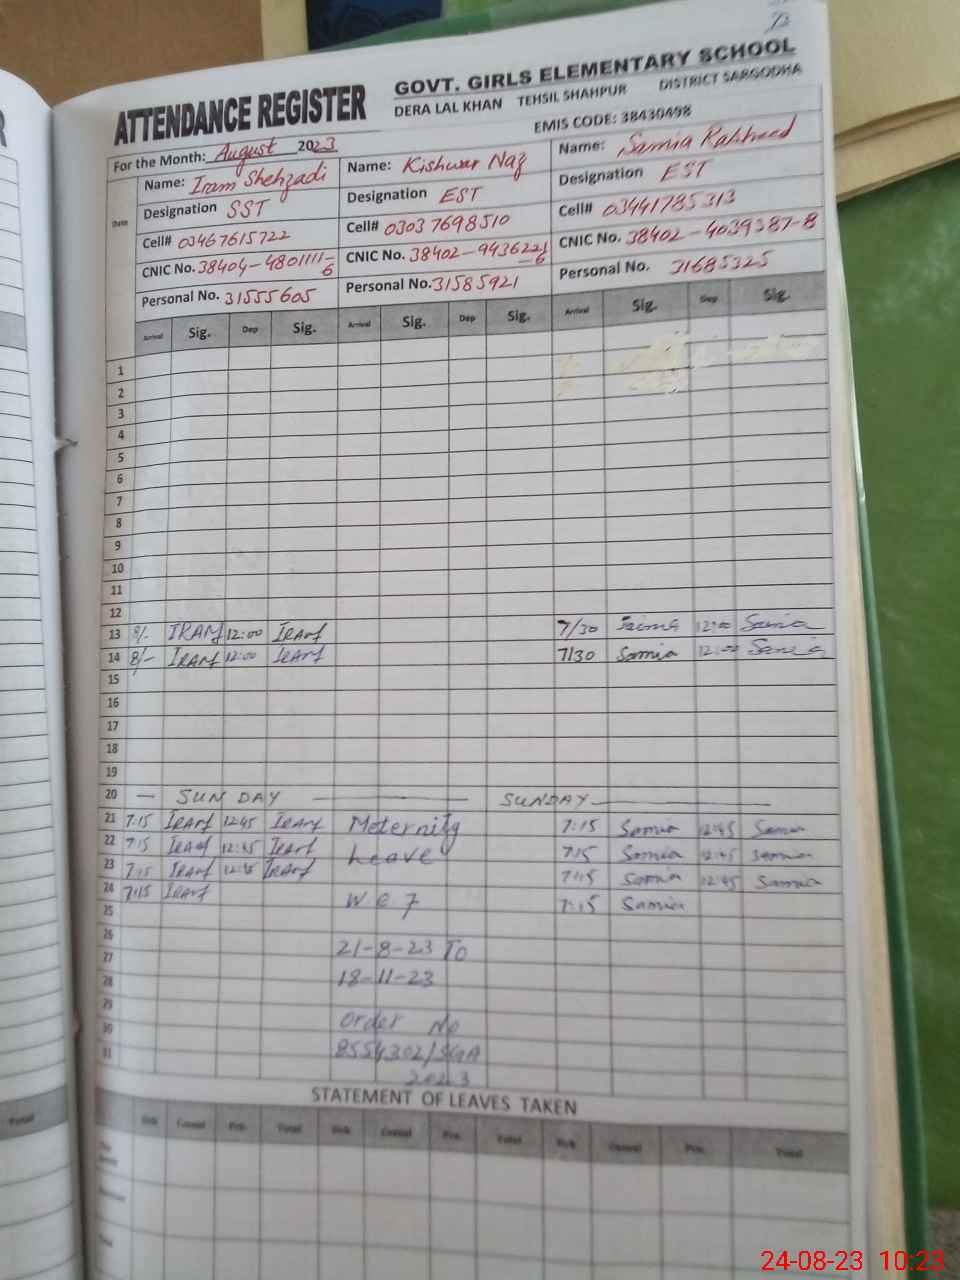 ATTENDANCE REGISTER
GOVT. GIRLS ELEMENTARY SCHOOL
DERA LAL KHAN TEHSIL SHAHPUR DISTRICT SARGODHA
EMIS CODE: 38430498
For the Month: August 2023
Date
Name: Iram Shehzadi Name: Kishwar Naz Name: Samia Rasheed
Designation SST Designation EST Designation EST
Cell# 03467615722 Cell# 0303 7698510 Cell# 03441785313
CNIC No. 38404-4801111-6 CNIC No. 38402-9436221-6 CNIC No. 38402-4039387-8
Personal No. 31555605 Personal No. 31585921 Personal No. 31685325
Arrival Sig. Dep Sig. Arrival Sig. Dep Sig. Arrival Sig. Dep Sig.
1
2
3
4
5
6
7
8
9
10
11
12
13 8/- IRAM 12:00 IRAM 7/30 12:00 Samia
14 8/- IRAM 12:00 IRAM 7/30 Samia 12:00 Samia
15
16
17
18
19
20 — SUNDAY — SUNDAY —
21 7:15 IRAM 12:45 IRAM Meternity 7:15 Samia 12:45 Samia
22 7:15 IRAM 12:45 IRAM Leave 7:15 Samia 12:45 Samia
23 7:15 IRAM 12:45 IRAM 7:15 Samia 12:45 Samia
24 7:15 IRAM W e f 7:15 Samia
25
26 21-8-23 To
27
28 18-11-23
29
30 Order No
31 8554302/SGA
2023
STATEMENT OF LEAVES TAKEN
Sick Casual Prv. Total Sick Casual Prv. Total Sick Casual Prv. Total
Total
24-08-23 10:23